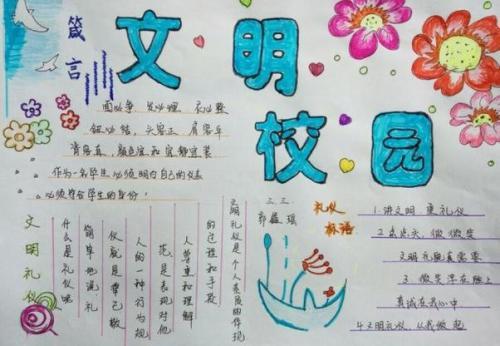 文明校园
箴言
面必净、发必理、衣必整
钮必结、头容正、肩容平
背容直、颜色宜和宜静宜装
作为一名学生必须明白自己的仪表
必须符合学生的身份。
文明礼仪
什么是礼仪呢
简单地说礼
仪就是律己敬
人的一种行为规
范,是表现对他
人尊重和理解
的过程和手段
文明礼仪是个人素质的体现
三三
礼仪
标语
1.讲文明,重礼仪
2.多点头,微微笑
文明礼貌真需要
3.微笑浮在脸上
真诚在我心中
4.文明礼仪,从我做起